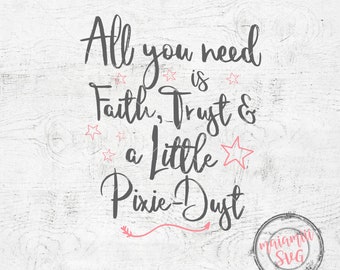 All you need
is
Faith, Trust &
a Little
Pixie-Dust
SVG